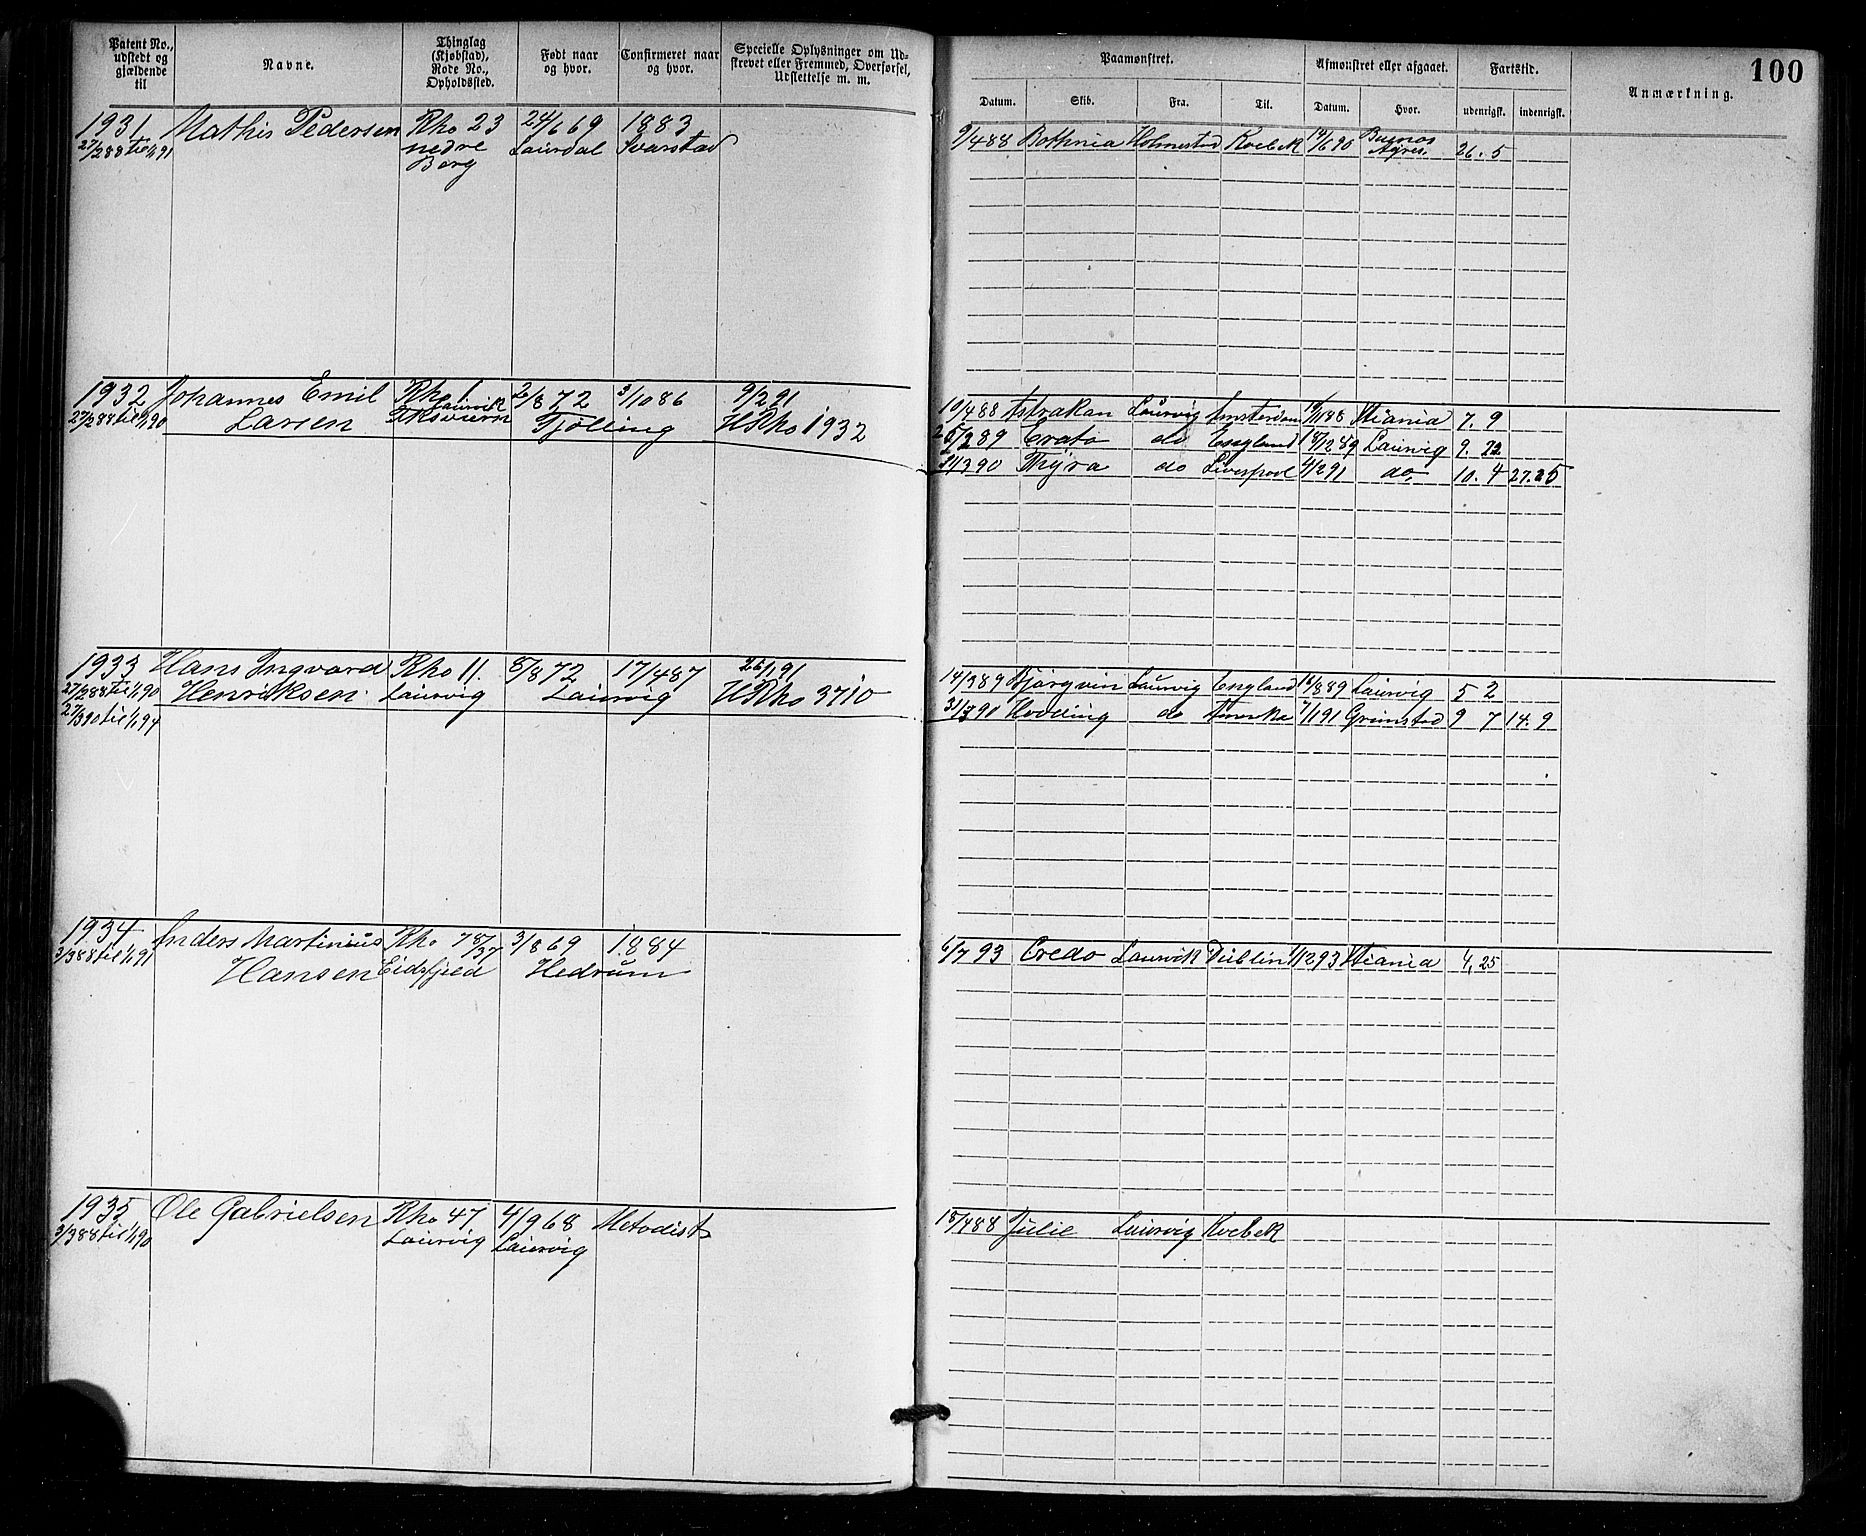 Patent No., udstedt og gjældende til
Navne.
Thinglag (Kjøbstad), Rode No., Opholdssted.
Født naar og hvor.
Confirmeret naar og hvor.
Specielle Oplysninger om Udskrevet eller Fremmed, Overførsel, Udslettelse m. m.
Paamønstret.
Afmønstret eller afgaaet.
Fartstid.
Anmærkning.
100
Datum. Skib. Fra. Til. Datum. Hvor. udenrigsk. indenrigsk.
1931 Mathis Pedersen Rho 23 24/6 69 1883
27/2 88 til 1/1 91 nedre Laurdal Svarstad
Borg
9/4 88 Bothnia Holmestrd Kvebek 19/6 90 Buenos Ayres. 26. 5
1932 Johannes Emil Rho 1 2/8 72 3/10 86 9/2 91
27/2 88 til 1/1 90 Larsen Laurvik Tjölling HRho 1932
10/4 88 Astrakan Laurvig Amsterdam Xiania 7. 9
Erato do England Laurvig 9. 22
Thyra do Liverpool 4/2 91 do, 10. 4 27. 25
1933 Hans Ingvard Rho 11. 8/8 72 17/4 87 26/1 91
27/2 88 til 1/1 90 Henriksen Laurvig Laurvig HRho 3710
27/3 90 til 1/1 94
14/3 89 Bjørgvin Laurvig England 16/8 89 Laurvig 5 2
31/3 90 Hvoding do Amerika 7/1 91 Grimstad 9 7 14. 9
1934 Anders Martinius Rho 787/37 3/8 69 1884
3/3 88 til 1/1 91 Hansen Eidsfjeld Hedrum
6/7 93 Credo Laurvik Dublin 1/12 93 Xiania 4, 25
1935 Ole Gabrielsen Rho 47 4/9 68 Metodist
3/3 88 til 1/1 90 Laurvig Laurvig
18/4 88 Julie Laurvig Kvebek